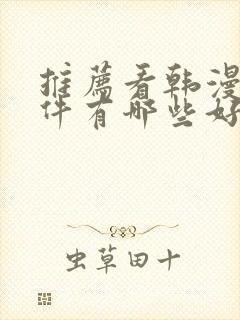 推薦看韩漫
件有哪些好
虫草田十